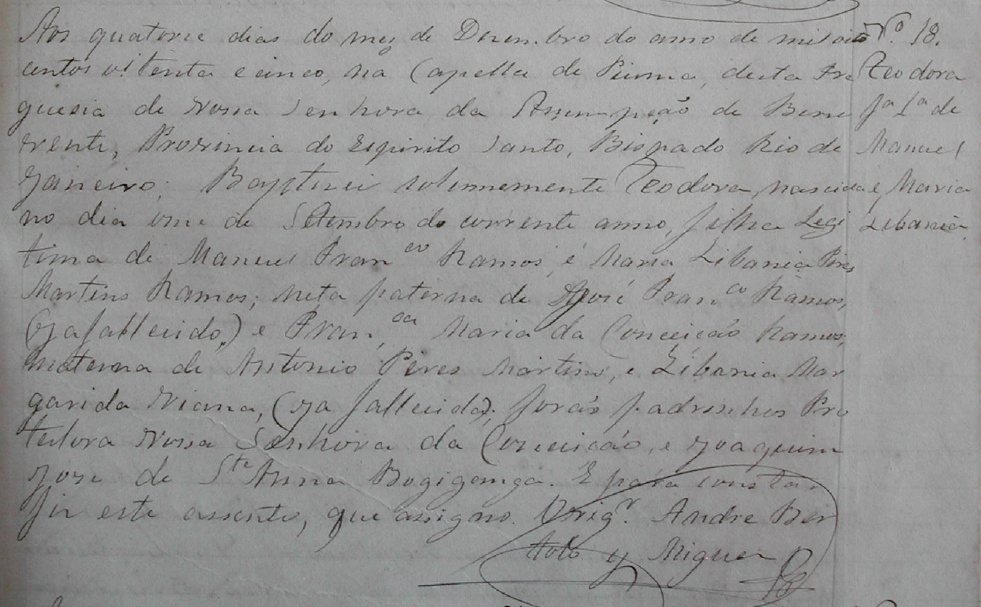 Aos quatorze dias do mez de Dezembro do anno de mil oito
centos oitenta e cinco, na Capella de Piuma, desta Fre
guesia de Nossa Senhora da Assumpção de Bene
vente, Provincia do Espirito Santo, Bispado Rio de
Janeiro; Baptizei solemnemente Teodora, nascida
no dia onze de Setembro do corrente anno, filha Legi
tima de Manuel Fran.co Ramos, e Maria Libania Pires
Martins Ramos; neta paterna de José Fran.co Ramos,
(ja fallecido,) e Fran.ca Maria da Conceicão Ramos,
materna de Antonio Peres Martins, e Libania Mar
garida Viana, (ja fallecida); forão padrinhos Pro
tectora Nossa Senhora da Conceicão, e Joaquim
Jose de Sta Anna Bogiganga. E para constar
fiz este assento, que assigno. O Vigr. Andre Ber
tolo y Miguer
Nº. 18.
Teodora
fª Lª de
Manuel
e Maria
Libania